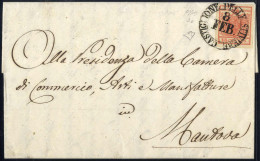 CASTIGLIONE DELLE STIVIERE
8
FEB
Alla Presidenza della Camera
di Commercio, Arti e Manifatture
in
Mantova